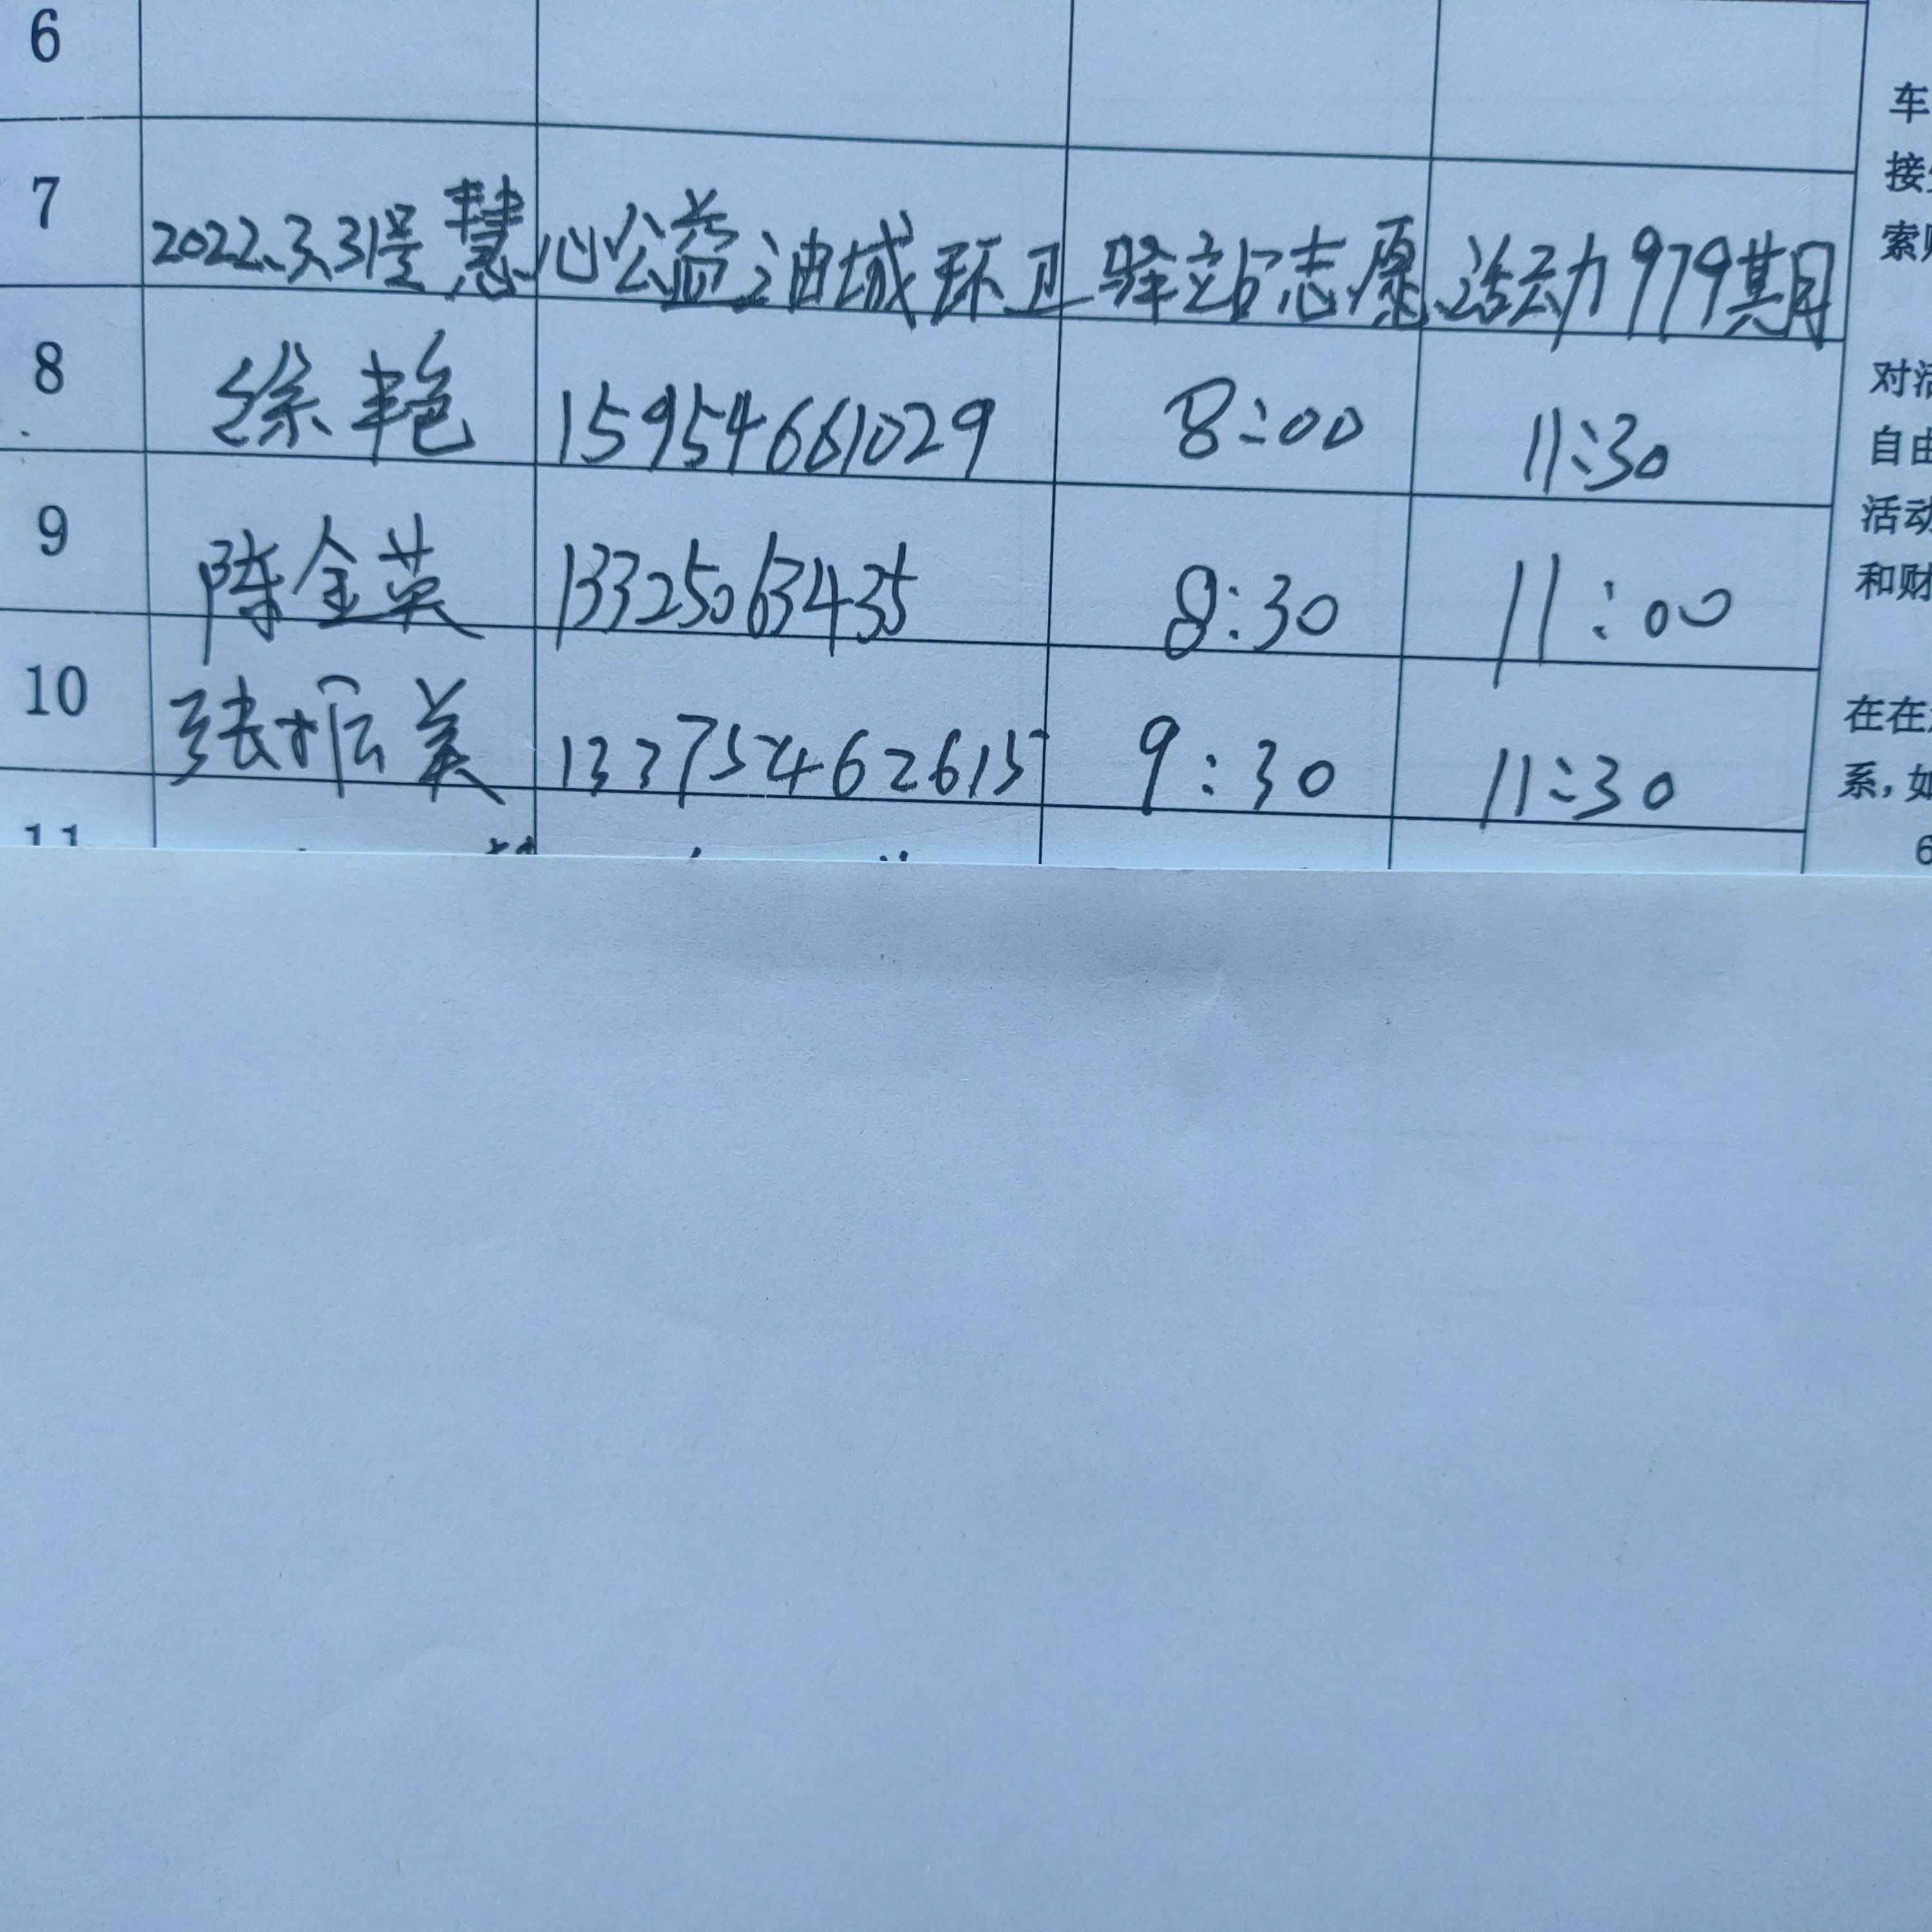 6
车
接
7 2022.3.31号慧心公益油城环卫驿站志愿活动979期
索
8 徐艳 15954661029 8:00 11:30
对活
自由
9 陈金英 13325063435 8:30 11:00
活动
和财
10 张振美 13375462615 9:30 11:30
在在
系,如
11
6